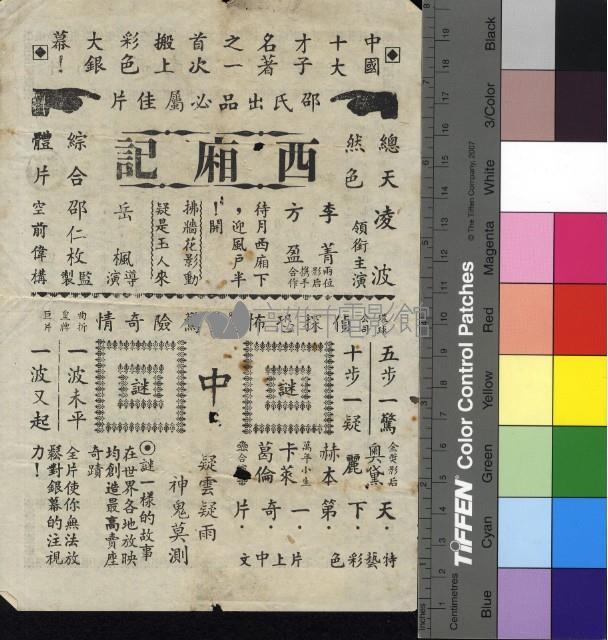 中國
十大
才子
名著
之一
首次
搬上
彩色
大銀
幕！
邵氏出品必屬佳片
西廂記
總天然色
綜合體
凌波
領銜主演
李菁
方盈
兩位影后攜手合作
待月西廂下
，迎風戶半
開！
拂牆花影動
疑是玉人來
岳楓
導演
邵仁枚
監製
片空前偉構
偵探恐怖驚險奇情
曲折
皇牌
巨片
五步一驚
十步一疑
謎中謎
一波未平
一波又起
金像影后
奧黛麗
赫本
萬年小生
卡萊
葛倫
天下第一奇片
特藝彩色
片上中文
疑雲疑雨
神鬼莫測
謎一樣的故事
在世界各地放映
均創造最高賣座
奇蹟
全片使你無法放
鬆對銀幕的注視
力！
Centimetres
Inches
TIFFEN® Color Control Patches
© The Tiffen Company, 2007
Blue
Cyan
Green
Yellow
Red
Magenta
White
3/Color
Black